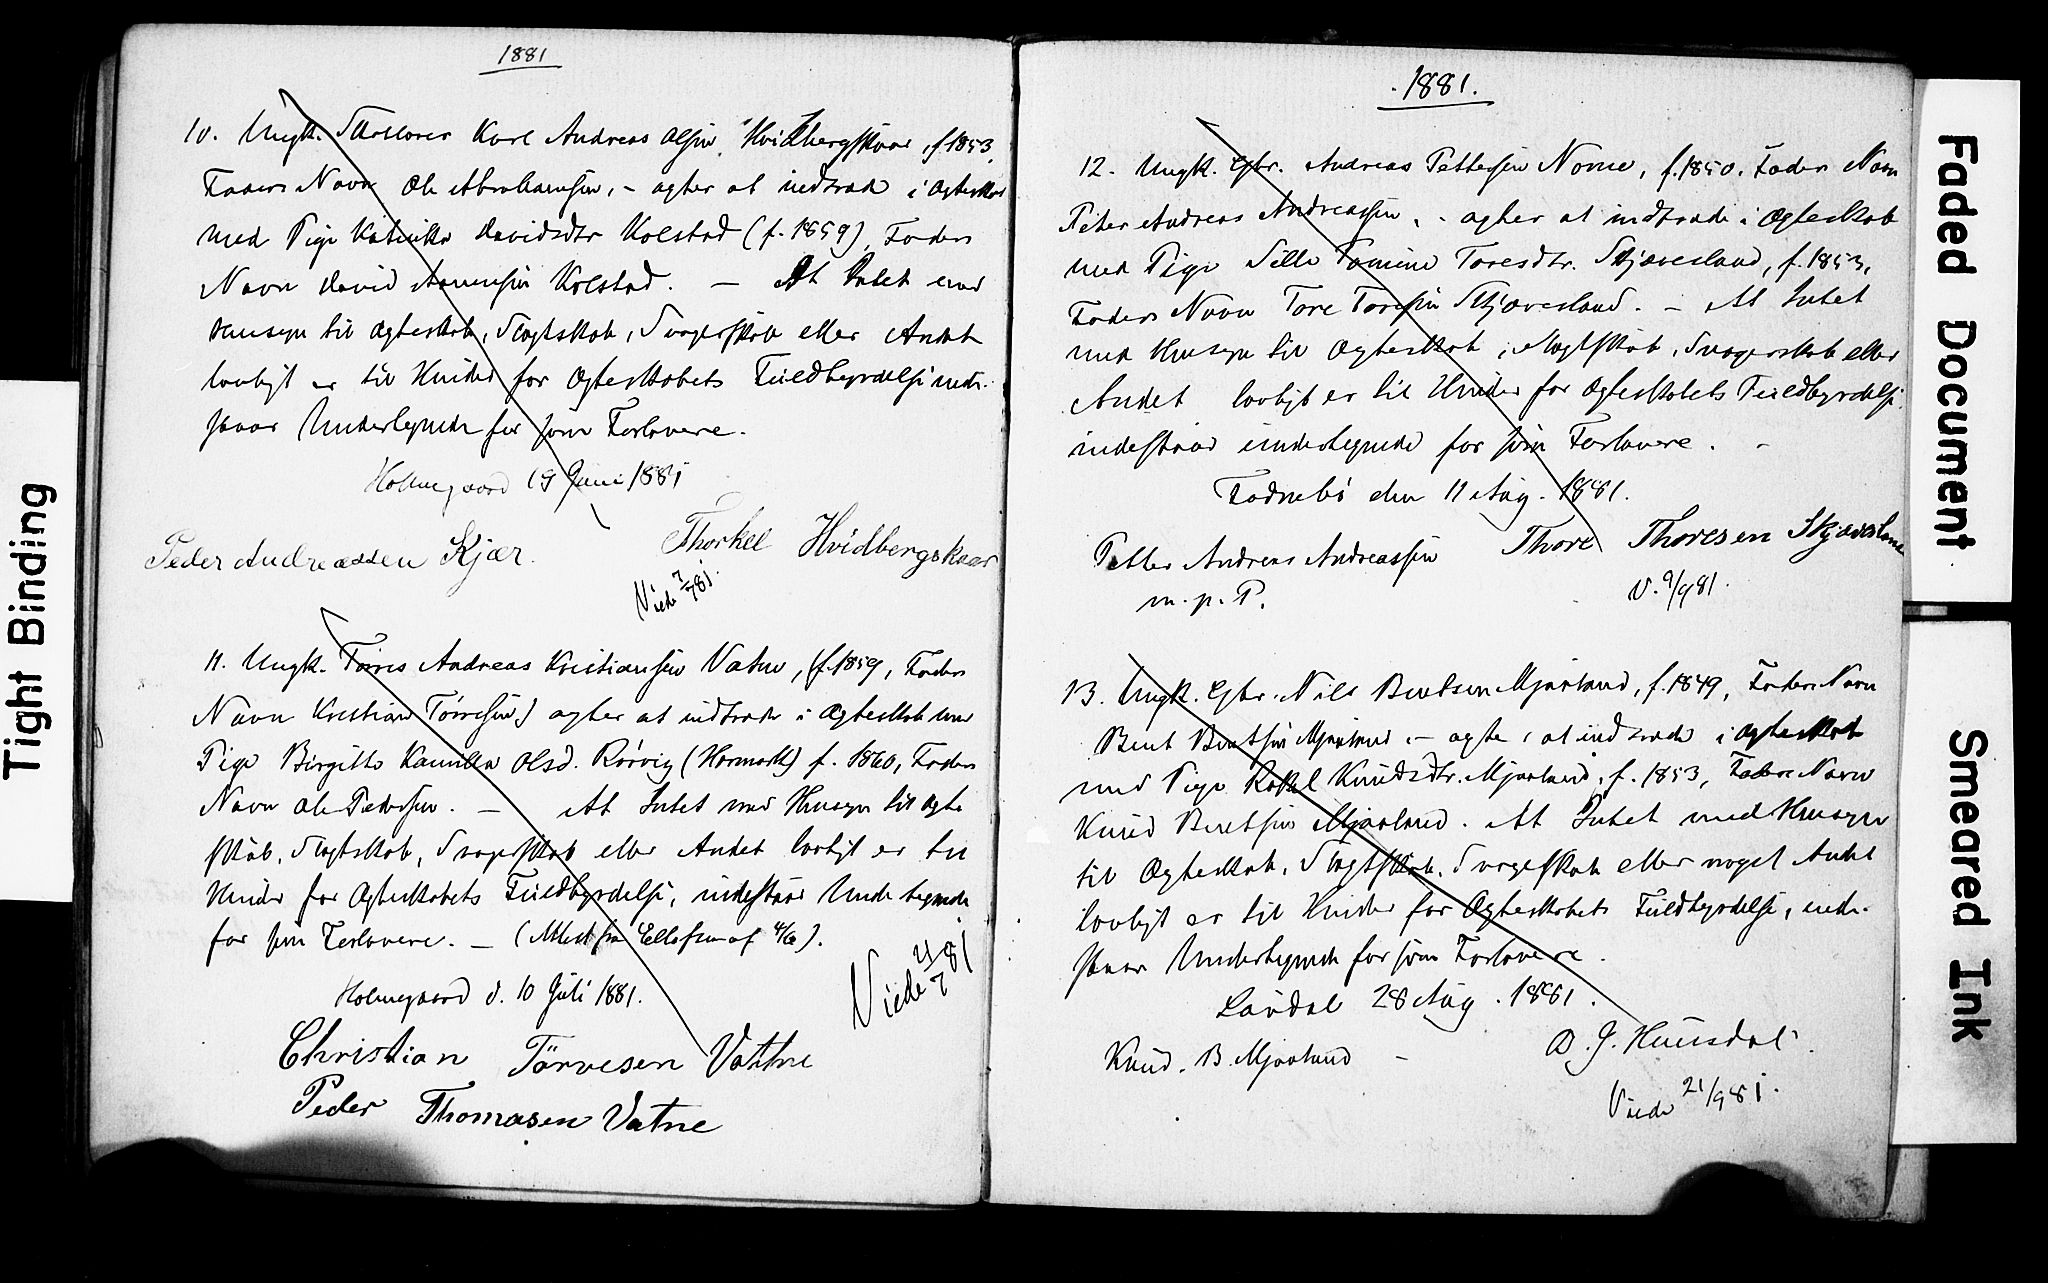 Tight Binding
1881
10. Ungk. Karl Andreas Olsen Hvidbergskaar, f. 1853,
Faders Navn Ole Abrahamsen, - agter at indtræde i Ægteskab
med Pige Katrike Davidsdtr Kolstad (f. 1859), Faders
Navn David Aanensen Kolstad. — At Intet med
Hensyn til Ægteskab, Slægtskab, Svogerskab eller Andet
lovligt er til Hinder for Ægteskabets Fuldbyrdelse inde-
staar Undertegnede for som Forlovere.
Holmegaard 19 Juni 1881
Peder Andreassen Kjær. Thorkel Hvidbergskaar
Viede 7/7 81.
11. Ungk. Tørres Andreas Kristiansen Vatne, (f. 1859, Faders
Navn Kristian Tørresen) agter at indtræde i Ægteskab med
Pige Birgitte Kamilla Olsd. Rørvig (Harmark) f. 1860, Faders
Navn Ole Pedersen. — At Intet med Hensyn til Ægte
skab, Slægtskab, Svogerskab eller Andet lovligt er til
Hinder for Ægteskabets Fuldbyrdelse, indestaar Undertegnede
for som Forlovere. — (Attest fra Ellefsen af 4/6).
Holmegaard d. 10 Juli 1881.
Viede 21/7 81
Christian Törresen Vattne
Peder Thomasen Vatne
.1881.
12. Ungk. Gbr. Andreas Pettersen Nome, f. 1850. Faders Navn
Peter Andreas Andreassen, - agter at indtræde i Ægteskab
med Pige Sille Tomine Toresdtr. Skjævesland, f. 1853,
Faders Navn Tore Toresen Skjævesland. - At Intet
med Hensyn til Ægteskab, Slægtskab, Svogerskab eller
Andet lovligt er til Hinder for Ægteskabets Fuldbyrdelse,
indestaar undertegnede for som Forlovere. -
Fadnebö den 11 Aug. 1881.
Petter Andreas Andreassen Thore Thoresen Skjævesland
m. p. P.
V. 9/9 81.
13. Ungk. Gbr. Nils Berntsen Mjaaland, f. 1849, Faders Navn
Bernt Berntsen Mjaaland. - agter at indtræde i Ægteskab
med Pige Rakel Knudsdtr. Mjaaland, f. 1853, Faders Navn
Knud Berntsen Mjaaland. At Intet med Hensyn
til Ægteskab, Slægtskab, Svogerskab eller noget Andet
lovligt er til Hinder for Ægteskabets Fuldbyrdelse, inde-
staar Undertegnede for som Forlovere.
Laudal 28 Aug. 1881.
Knud. B. Mjaaland - O. J. Huusdal.
Viede 21/9 81.
Faded Document
Smeared Ink